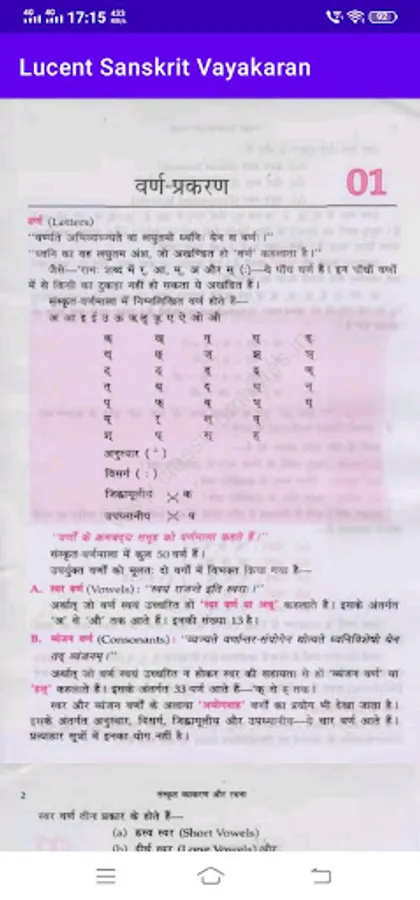 17:15
92
Lucent Sanskrit Vayakaran
वर्ण-प्रकरण 01
वर्ण (Letters)
"ध्वनि का वह लघुतम अंश, जो अखण्डित हो 'वर्ण' कहलाता है।"
जैसे—'रामः शब्द में र्, आ, म्, अ और स् (:)—ये पाँच वर्ण हैं। इन पाँचों वर्णों
में से किसी का टुकड़ा नहीं हो सकता ये अखंडित हैं।
संस्कृत-वर्णमाला में निम्नलिखित वर्ण होते हैं—
अ आ इ ई उ ऊ ऋ ॠ ऌ ए ऐ ओ औ
क् ख् ग् घ् ङ्
च् छ् ज् झ् ञ्
ट् ठ् ड् ढ् ण्
त् थ् द् ध् न्
प् फ् ब् भ् म्
य् र् ल् व्
श् ष् स् ह्
अनुस्वार ( ं )
विसर्ग ( : )
जिह्वामूलीय ⨯ क
उपध्मानीय ⨯ प
"वर्णों के क्रमबद्ध समूह को वर्णमाला कहते हैं।"
संस्कृत-वर्णमाला में कुल 50 वर्ण हैं।
उपर्युक्त वर्णों को मूलतः दो वर्गों में विभक्त किया गया है—
A. स्वर वर्ण (Vowels) : "स्वयं राजन्ते इति स्वराः।"
अर्थात् जो वर्ण स्वयं उच्चरित हो 'स्वर वर्ण या अच्' कहलाते हैं। इसके अंतर्गत
'अ' से 'औ' तक आते हैं। इनकी संख्या 13 है।
B. व्यंजन वर्ण (Consonants) : "व्यज्यते वर्णान्तर-संयोगेन द्योत्यते ध्वनिविशेषो येन
तद् व्यंजनम्।"
अर्थात् जो वर्ण स्वयं उच्चरित न होकर स्वर की सहायता से हो 'व्यंजन वर्ण' या
'हल्' कहलाते हैं। इसके अंतर्गत 33 वर्ण आते हैं—'क् से ह् तक।
स्वर और व्यंजन वर्णों के अलावा 'अयोगवाह' वर्णों का प्रयोग भी देखा जाता है।
इसके अंतर्गत अनुस्वार, विसर्ग, जिह्वामूलीय और उपध्मानीय—ये चार वर्ण आते हैं।
प्रत्याहार सूत्रों में इनका योग नहीं है।
2 संस्कृत व्याकरण और रचना
स्वर वर्ण तीन प्रकार के होते हैं—
(a) ह्रस्व स्वर (Short Vowels)
(b) दीर्घ स्वर (Long Vowels) और